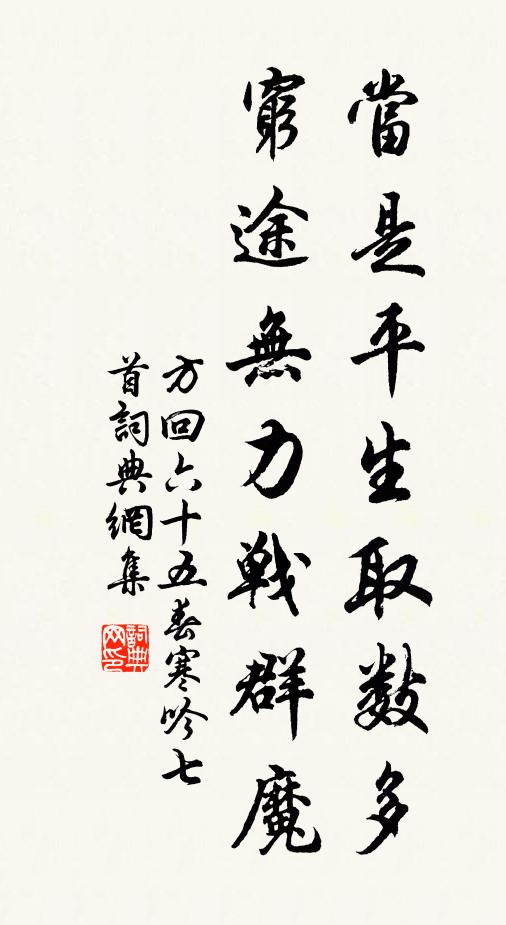 當是平生取数多
窮途無力戰群魔
方回六十五春寒吟七
首詞典網集
詞典
网印